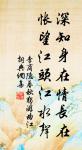 深知身在情長在
悵望江頭江水聲
李商隱暮秋獨遊曲江
詞典網集